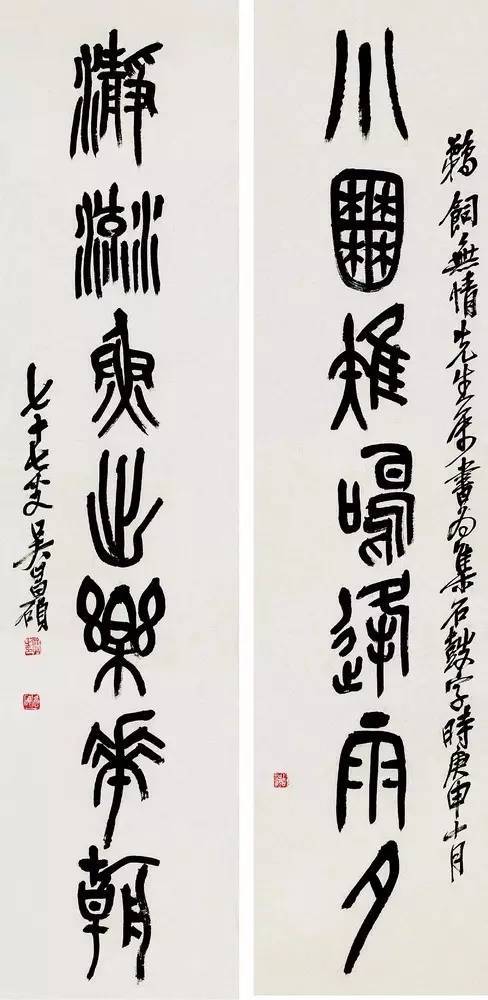 小囿雉鳴逢雨夕
鵜飼無情先生属書為集石鼓字時庚申十月
瀞流魚出樂華朝
七十七叟吳昌碩